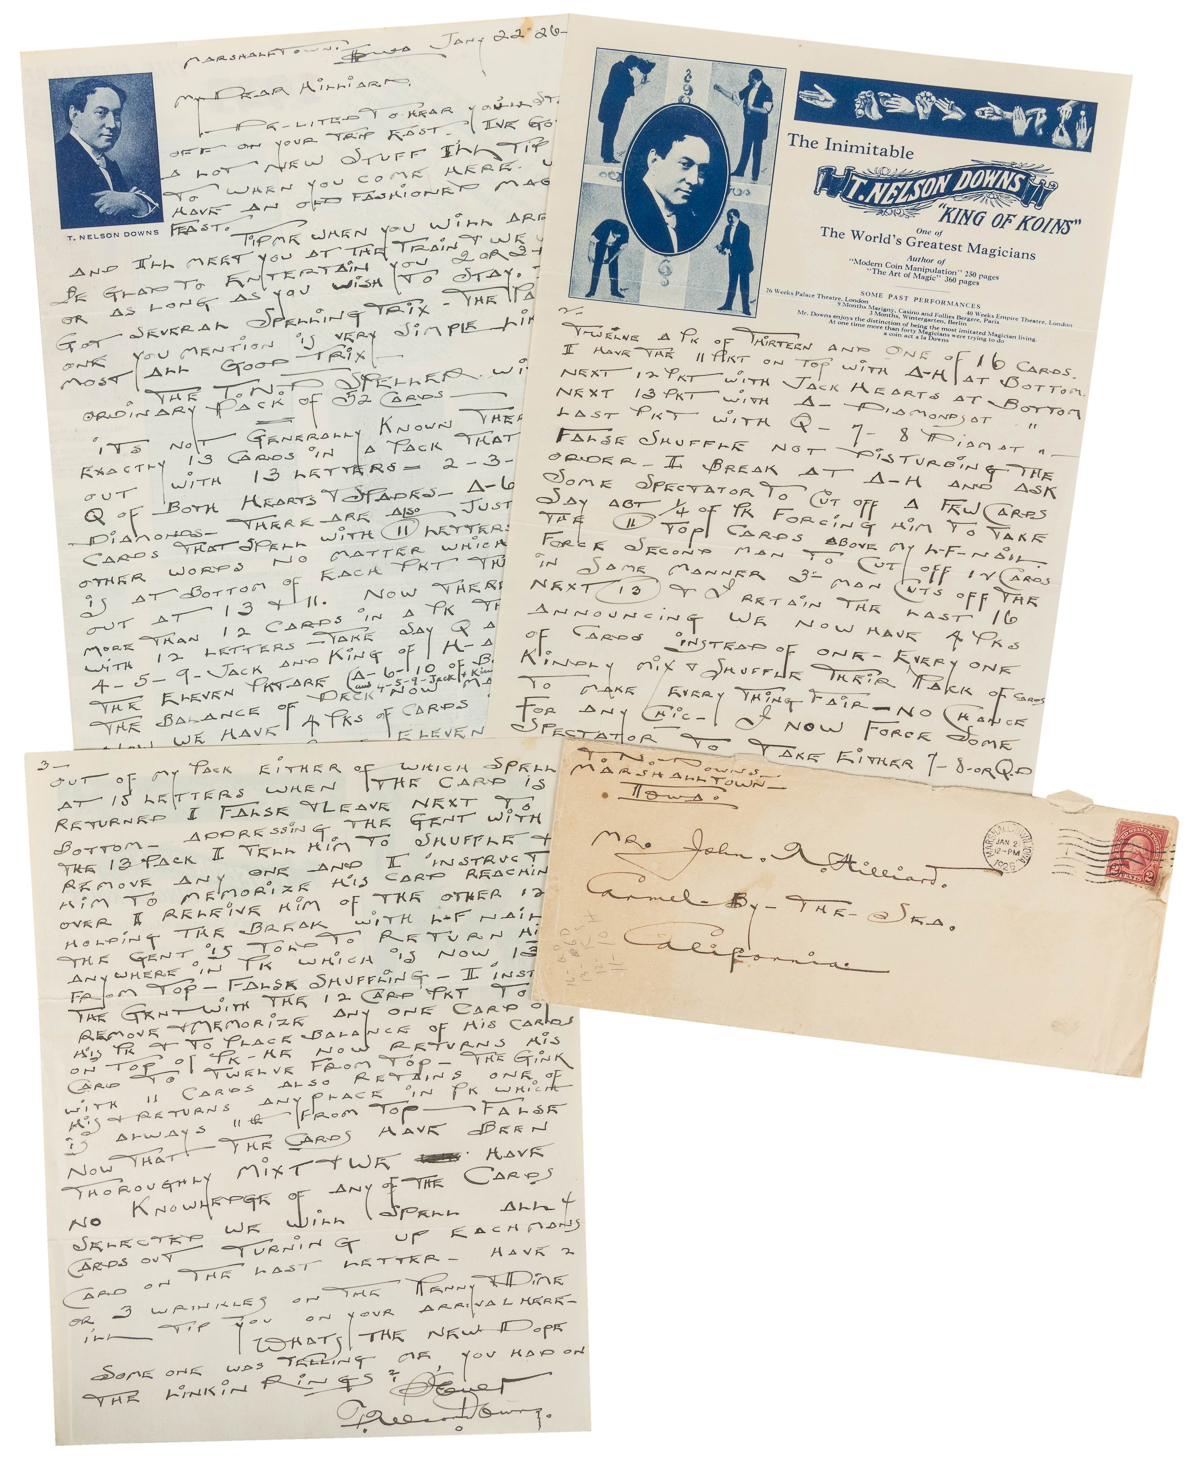 Marshalltown. Iowa Jany 22 26-
My Dear Hilliard.
De-lited to hear you'll st
off on your trip East- I've Got
a lot new stuff I'll tip
to when you come here.
Have an old fashioned Mag
Feast.
T. NELSON DOWNS
Tip me when you will arr
and I'll meet you at the train & we
Be glad to entertain you 2 or 3
or as long as you wish to stay.
Got several spelling trix - the
one you mention is very simple
most all good trix-
The T.N.D. Speller wi
ordinary pack of 52 cards-
it's not Generally known ther
exactly 13 cards in a pack that
out with 13 letters- 2-3-
Q of Both Hearts & Spades- A-6
Diamonds- There are also just
cards that spell with 11 letters
other words no matter which
is at bottom of each pkt th
out at 13 & 11. Now there
more than 12 cards in a pk th
with 12 letters- take say Q
4-5-9-Jack and King of H-
The Eleven pkt are (A-6-10 of
and 4-5-9-Jack & Kin
The Balance of deck now ma
we have 4 pks of cards
Eleven
The Inimitable
T. NELSON DOWNS
"KING OF KOINS"
One of
The World's Greatest Magicians
Author of
"Modern Coin Manipulation" 250 pages
"The Art of Magic" 360 pages
SOME PAST PERFORMANCES
26 Weeks Palace Theatre, London 40 Weeks Empire Theatre, London
9 Months Marigny, Casino and Follies Bergere, Paris
3 Months, Wintergarten, Berlin
Mr. Downs enjoys the distinction of being the most imitated Magician living.
At one time more than forty Magicians were trying to do
a coin act a la Downs
2-
Twelve a pk of Thirteen and one of 16 cards.
I have the 11 pkt on top with A-H at Bottom.
next 12 pkt with Jack Hearts at Bottom
next 13 pkt with A- Diamonds at "
Last pkt with Q-7-8 Diam at "-
False shuffle not disturbing the
order- I Break at A-H and ask
some spectator to cut off a few cards
say abt 1/4 of pk forcing him to take
the 11 top cards above my L-F-nail.
Force second man to cut off 12 cards
in same manner 3- man cuts off the
next 13 & I retain the last 16
announcing we now have 4 pks
of cards instead of one- Every one
kindly mix & shuffle their pack of cards
to make every thing fair- no chance
for any chic- I now force some
spectator to take either 7-8-or Q.D
3-
out of my pack either of which spell
at 15 letters when the card is
returned I false & leave next to
Bottom- addressing the Gent with
the 13 pack I tell him to shuffle &
remove any one and I instruct
him to memorize his card reachin
over I releive him of the other 12
holding the break with L-F nail
the Gent is told to return hi
anywhere in pk which is now 13
from top- false shuffling- I inst
the Gent with the 12 card pkt to
remove & memorize any one card of
his pk & to place balance of his cards
on top of pk- he now returns his
card to twelve from top- the Gink
with 11 cards also retains one of
his & returns any place in pk which
is always 11th from top- false
Now that the cards have been
thoroughly mixt & we have
no knowledge of any of the cards
selected we will spell all 4
cards out turning up each mans
card on the last letter- Have 2
or 3 wrinkles on the Penny & Dime
i'll tip you on your arrival here-
Whats the new dope
Some one was telling me, you had on
the Linkin Rings?
T Nelson Downs.
T. N- Downs-
Marshalltown-
Iowa.
MARSHALLTOWN, IOWA
JAN 2
12-PM
UNITED STATES POSTAGE
2 CENTS 2
Mr. John. N. Hilliard.
Carmel- By- The- Sea.
California.